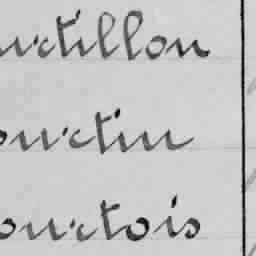 urtillon
ourtin
ourtois